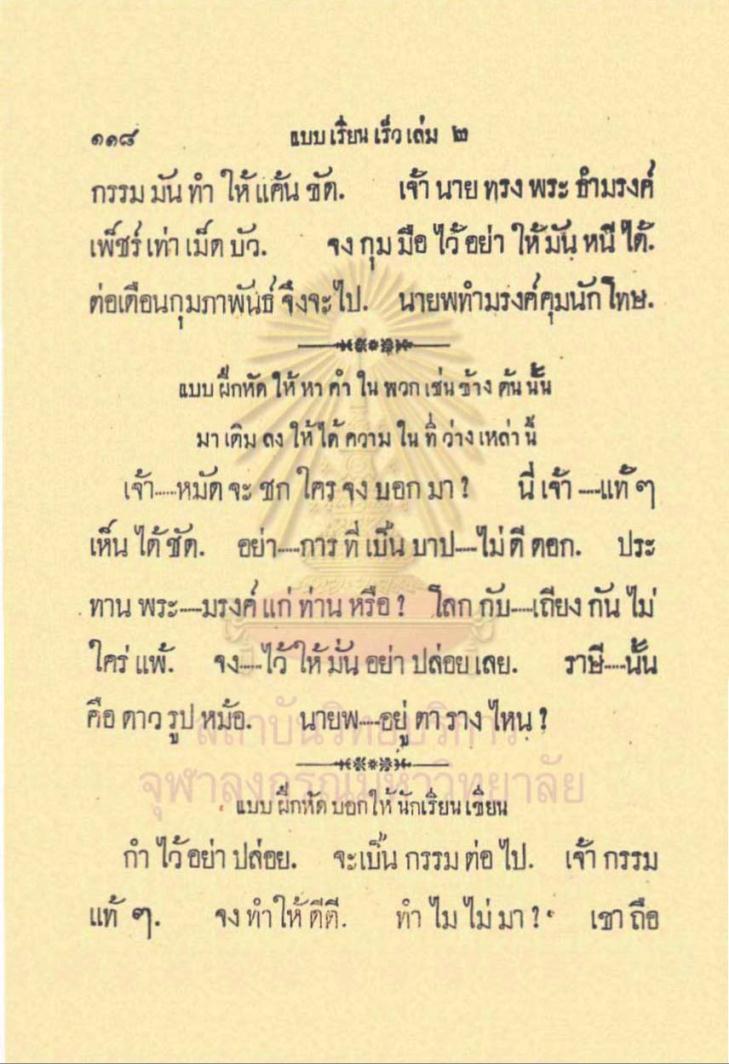 ๑๑๘ แบบ เรียน เร็ว เล่ม ๒
กรรม มัน ทำ ให้ แค้น ขัด. เจ้า นาย ทรง พระ ธำมรงค์
เพ็ชร์ เท่า เม็ด บัว. จง กุม มือ ไว้ อย่า ให้ มัน หนี ได้.
ต่อเดือนกุมภาพันธ์ จึงจะไป. นายพทำมรงค์คุมนักโทษ.
แบบ ฝึกหัด ให้ หา คำ ใน พวก เช่น ข้าง ต้น นั้น
มา เติม ลง ให้ ได้ ความ ใน ที่ ว่าง เหล่า นี้
เจ้า----หมัด จะ ชก ใคร จง บอก มา ? นี่ เจ้า ----แท้ ๆ
เห็น ได้ ชัด. อย่า----การ ที่ เปิ็น บาป----ไม่ ดี ดอก. ประ
ทาน พระ----มรงค์ แก่ ท่าน หรือ ? โลก กับ----เถียง กัน ไม่
ใคร่ แพ้. จง----ไว้ ให้ มั่น อย่า ปล่อย เลย. ราษี----นั้น
คือ ดาว รูป หม้อ. นายพ----อยู่ ตา ราง ไหน ?
แบบ ฝึกหัด บอก ให้ นักเรียน เขียน
กำ ไว้ อย่า ปล่อย. จะเปิ็น กรรม ต่อ ไป. เจ้า กรรม
แท้ ๆ. จง ทำ ให้ ดีดี. ทำ ไม ไม่ มา ? เขา ถือ
สถาบันวิทยบริการ
จุฬาลงกรณ์มหาวิทยาลัย